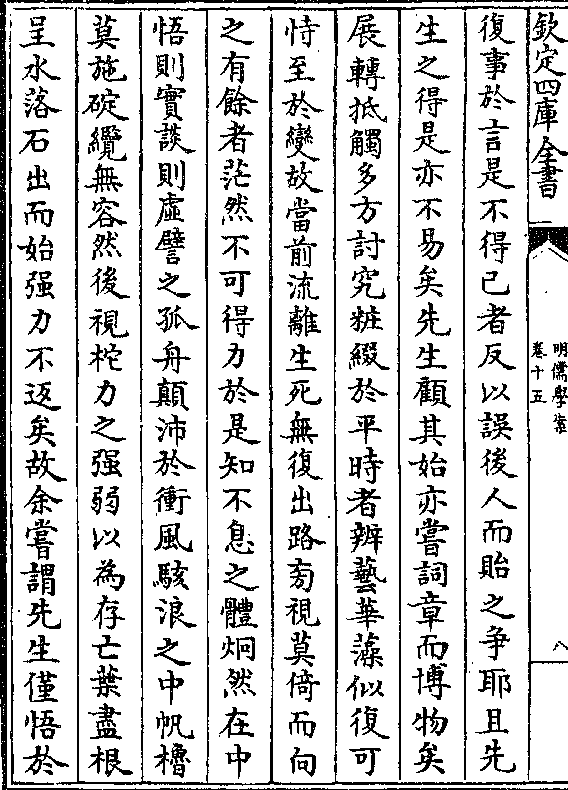 欽定四庫全書
明儒學案
卷十五
八
復事於言是不得已者反以誤後人而貽之争耶且先
生之得是亦不易矣先生顧其始亦嘗詞章而博物矣
展轉抵觸多方討究粧綴於平時者辨藝華藻似復可
恃至於變故當前流離生死無復出路旁視莫倚而向
之有餘者茫然不可得力於是知不息之體炯然在中
悟則實談則虛譬之孤舟顛沛於衝風駭浪之中帆櫓
莫施碇纜無容然後視柁力之强弱以為存亡葉盡根
呈水落石出而始强力不返矣故余嘗謂先生僅悟於